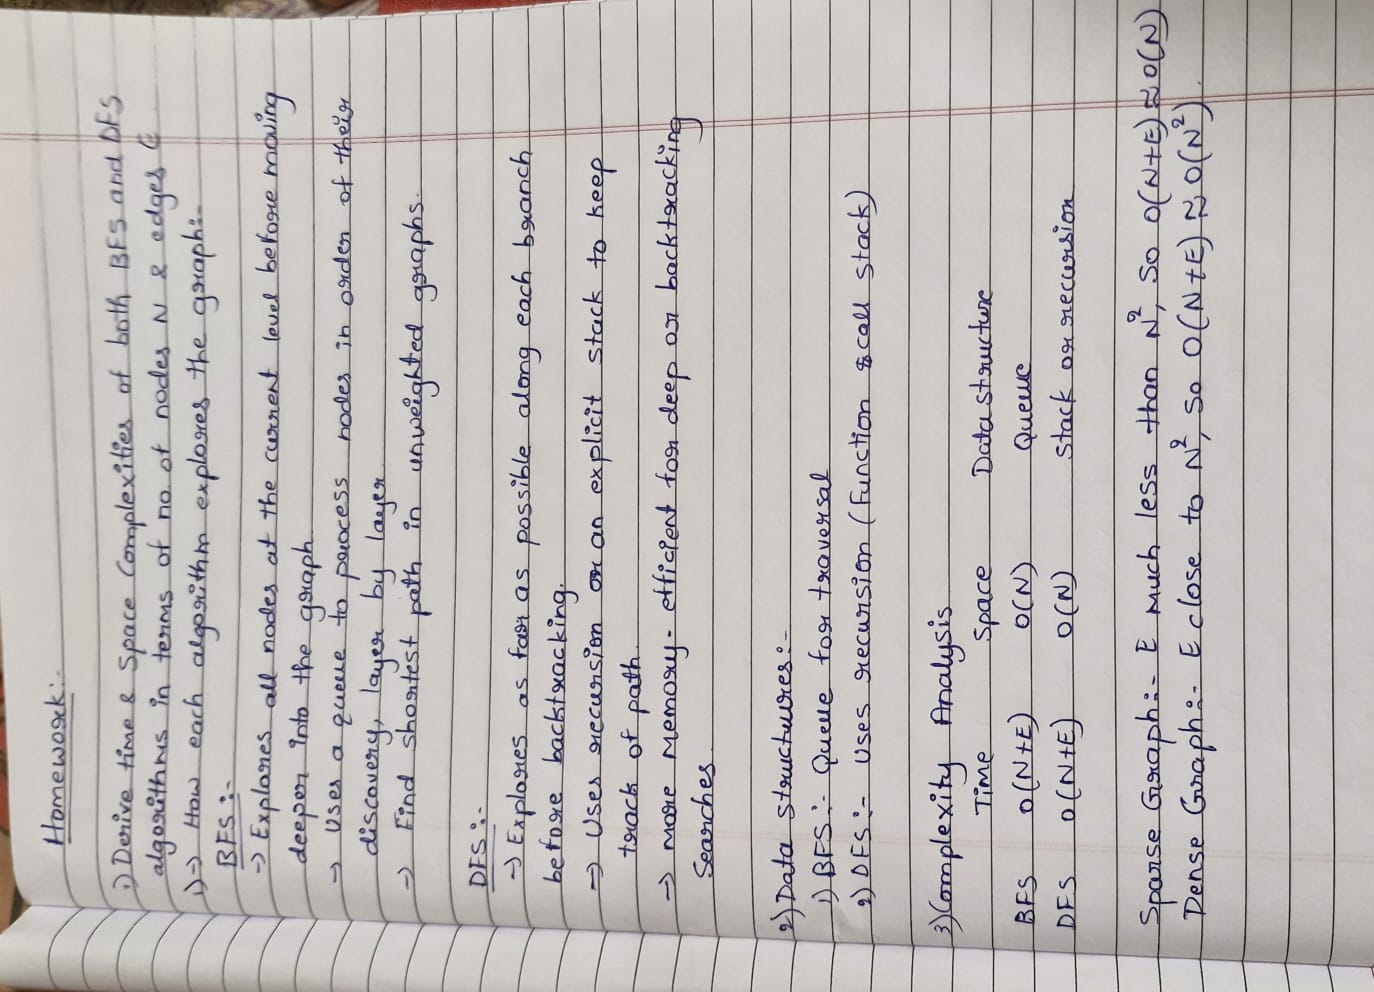 Homework:-
1) Derive time & Space Complexities of both BFS and DFS
algorithms in terms of no. of nodes N & edges E
1) → How each algorithm explores the graph:-
BFS:-
→ Explores all nodes at the current level before moving
deeper into the graph
→ Uses a queue to process nodes in order of their
discovery, layer by layer
→ Find shortest path in unweighted graphs.
DFS:-
→ Explores as far as possible along each branch
before backtracking.
→ Uses recursion or an explicit stack to keep
track of path.
→ More memory-efficient for deep or backtracking
Searches.
2) Data structures:-
1) BFS:- Queue for traversal
2) DFS:- Uses recursion (Function call stack)
3) Complexity Analysis
Time Space Data structure
BFS O(N+E) O(N) Queue
DFS O(N+E) O(N) Stack or recursion
Sparse Graph:- E Much less than N², so O(N+E) ≈ O(N)
Dense Graph:- E close to N², so O(N+E) ≈ O(N²).